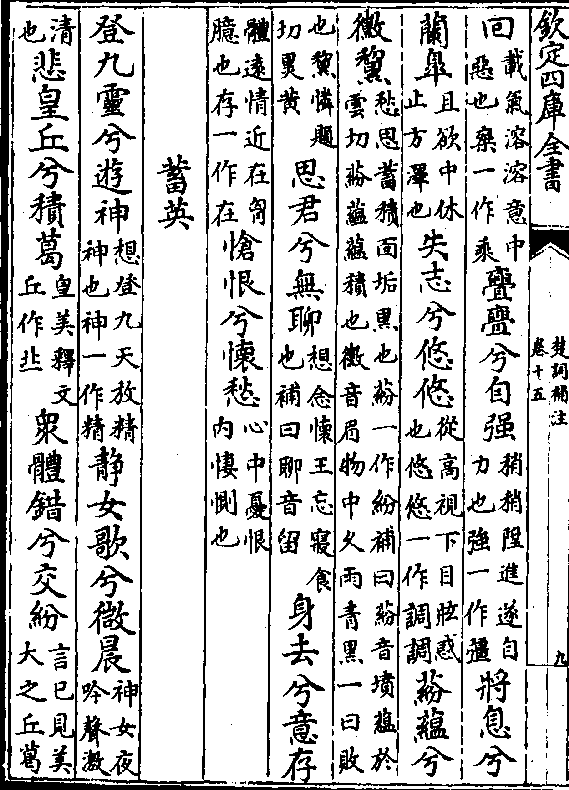 欽定四庫全書
楚詞補注
卷十五
九
回載氣溶溶意中惡也椉一作乘亹亹兮自强稍稍陞進遂自力也強一作彊將息兮
蘭臯且欲中休止方澤也失志兮悠悠從高視下目眩惑也悠悠一作調調蒶蘊兮
黴黧愁思蓄積面垢黒也蒶一作紛補曰蒶音墳蘊於雲切蒶蘊蘊積也黴音眉物中久雨青黑一曰敗
也黧憐題切黒黄思君兮無聊想念懐王忘寢食也補曰聊音留身去兮意存
體遠情近在胷臆也存一作在愴恨兮懷愁心中憂恨内悽惻也
蓄英
登九靈兮遊神想登九天放精神也神一作精靜女歌兮微晨神女夜吟聲激
清也悲皇丘兮積葛皇美釋文丘作丠衆體錯兮交紛言已見美大之丘葛